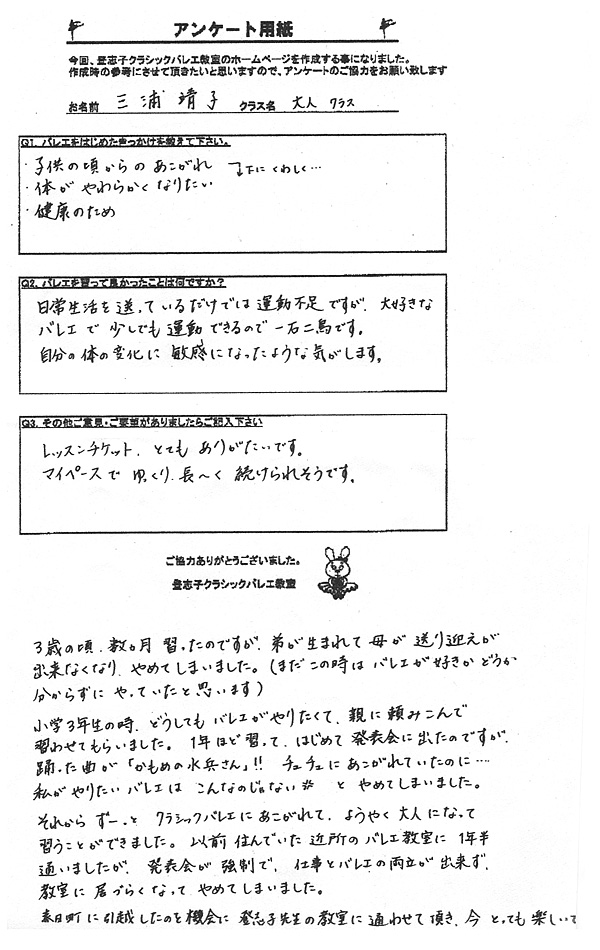 アンケート用紙
今回、登志子クラシックバレエ教室のホームページを作成する事になりました。
作成時の参考にさせて頂きたいと思いますので、アンケートのご協力をお願い致します
お名前 三浦靖子 クラス名 大人クラス
Q1. バレエをはじめたきっかけを教えて下さい。
・子供の頃からのあこがれ ↴下にくわしく…
・体がやわらかくなりたい
・健康のため
Q2. バレエを習って良かったことは何ですか?
日常生活を送っているだけでは運動不足ですが、大好きな
バレエで少しでも運動できるので一石二鳥です。
自分の体の変化に敏感になったような気がします。
Q3. その他ご意見・ご要望がありましたらご記入下さい
レッスンチケット、とてもありがたいです。
マイペースでゆっくり、長〜く続けられそうです。
ご協力ありがとうございました。
登志子クラシックバレエ教室
3歳の頃、数ヶ月習ったのですが、弟が生まれて母が送り迎えが
出来なくなり、やめてしまいました。(まだこの時はバレエが好きかどうか
分からずにやっていたと思います)
小学3年生の時、どうしてもバレエがやりたくて、親に頼みこんで
習わせてもらいました。1年ほど習って、はじめて発表会に出たのですが、
踊った曲が「かもめの水兵さん」!! チュチュにあこがれていたのに……
私がやりたいバレエはこんなのじゃない とやめてしまいました。
それからずーっとクラシックバレエにあこがれて、ようやく大人になって
習うことができました。以前住んでいた近所のバレエ教室に1年半
通いましたが、発表会が強制で、仕事とバレエの両立が出来ず、
教室に居づらくなってやめてしまいました。
春日町に引越したのを機会に登志子先生の教室に通わせて頂き、今とっても楽しいで